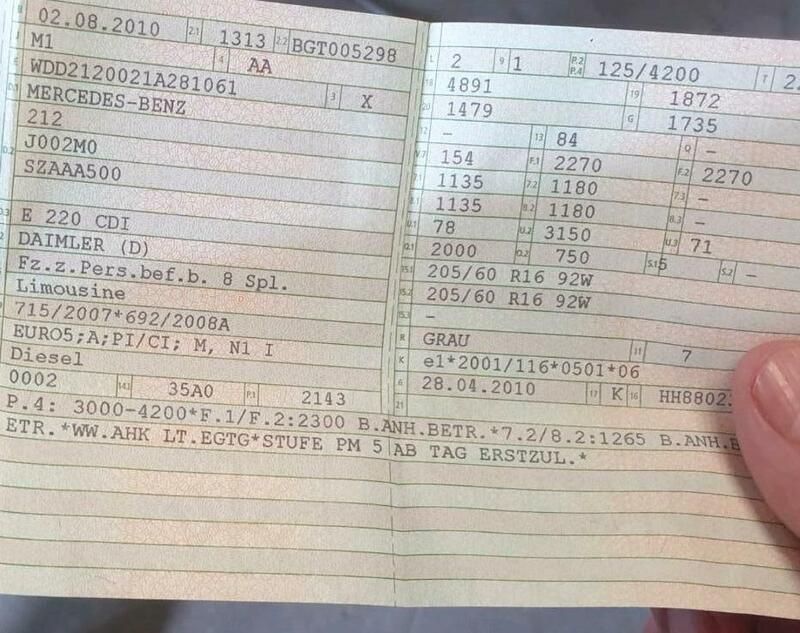 B 02.08.2010 2.1 1313 2.2 BGT005298
J M1 4 AA
E WDD2120021A281061 3 X
D.1 MERCEDES-BENZ
212
D.2 J002M0
SZAAA500
D.3 E 220 CDI
2 DAIMLER (D)
5 Fz.z.Pers.bef.b. 8 Spl.
Limousine
715/2007*692/2008A
EURO5;A;PI/CI; M, N1 I
Diesel
0002 14.1 35A0 P.1 2143
L 2 9 1 P.2 P.4 125/4200 T
18 4891 19 1872
20 1479 G 1735
12 - 13 84 Q -
V.7 154 F.1 2270 F.2 2270
7.1 1135 7.2 1180 7.3 -
8.1 1135 8.2 1180 8.3 -
U.1 78 U.2 3150 U.3 71
O.1 2000 O.2 750 S.1 5 S.2 -
15.1 205/60 R16 92W
15.2 205/60 R16 92W
15.3 -
R GRAU 11 7
K e1*2001/116*0501*06
6 28.04.2010 17 K 16
21
P.4: 3000-4200*F.1/F.2:2300 B.ANH.BETR.*7.2/8.2:1265 B.ANH.B
ETR.*WW.AHK LT.EGTG*STUFE PM 5 AB TAG ERSTZUL.*